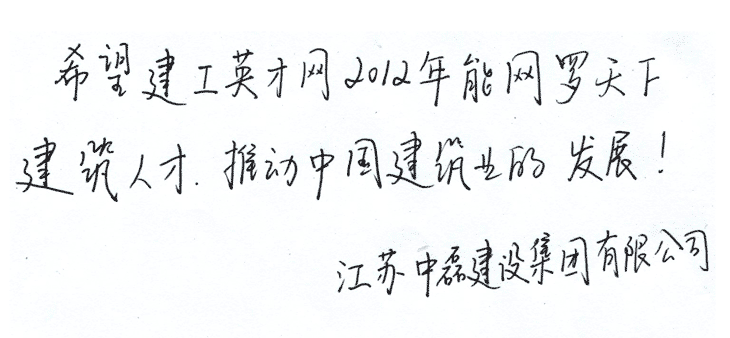 希望建工英才网2012年能网罗天下
建筑人才.推动中国建筑业的发展!
江苏中磊建设集团有限公司